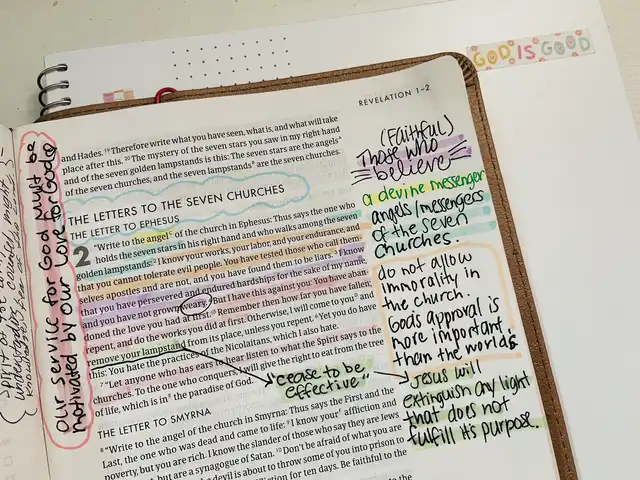 GOD IS GOOD
REVELATION 1–2
and Hades. 19 Therefore write what you have seen, what is, and what will take
place after this. 20 The mystery of the seven stars you saw in my right hand
and of the seven golden lampstands is this: The seven stars are the angels
of the seven churches, and the seven lampstands are the seven churches.
THE LETTERS TO THE SEVEN CHURCHES
THE LETTER TO EPHESUS
2 "Write to the angel of the church in Ephesus: Thus says the one who
holds the seven stars in his right hand and who walks among the seven
golden lampstands: 2 I know your works, your labor, and your endurance, and
that you cannot tolerate evil people. You have tested those who call them-
selves apostles and are not, and you have found them to be liars. 3 I know
that you have persevered and endured hardships for the sake of my name,
and you have not grown weary. 4 But I have this against you: You have aban-
doned the love you had at first. 5 Remember then how far you have fallen;
repent, and do the works you did at first. Otherwise, I will come to you and
remove your lampstand from its place, unless you repent. 6 Yet you do have
this: You hate the practices of the Nicolaitans, which I also hate.
7 "Let anyone who has ears to hear listen to what the Spirit says to the
churches. To the one who conquers, I will give the right to eat from the tree
of life, which is in the paradise of God.
THE LETTER TO SMYRNA
8 "Write to the angel of the church in Smyrna: Thus says the First and the
Last, the one who was dead and came to life: 9 I know your affliction and
poverty, but you are rich. I know the slander of those who say they are Jews
and are not, but are a synagogue of Satan. 10 Don't be afraid of what you are
devil is about to throw some of you into prison to
affliction for ten days. Be faithful to the
(Faithful)
Those who
believe
a devine messenger
angels/messengers
of the seven
churches.
do not allow
immorality in
the church.
God's approval is
more important
than the world's
cease to be
effective!
Jesus will
extinguish any light
that does not
fulfill it's purpose.
our service for God must be
motivated by our love for God